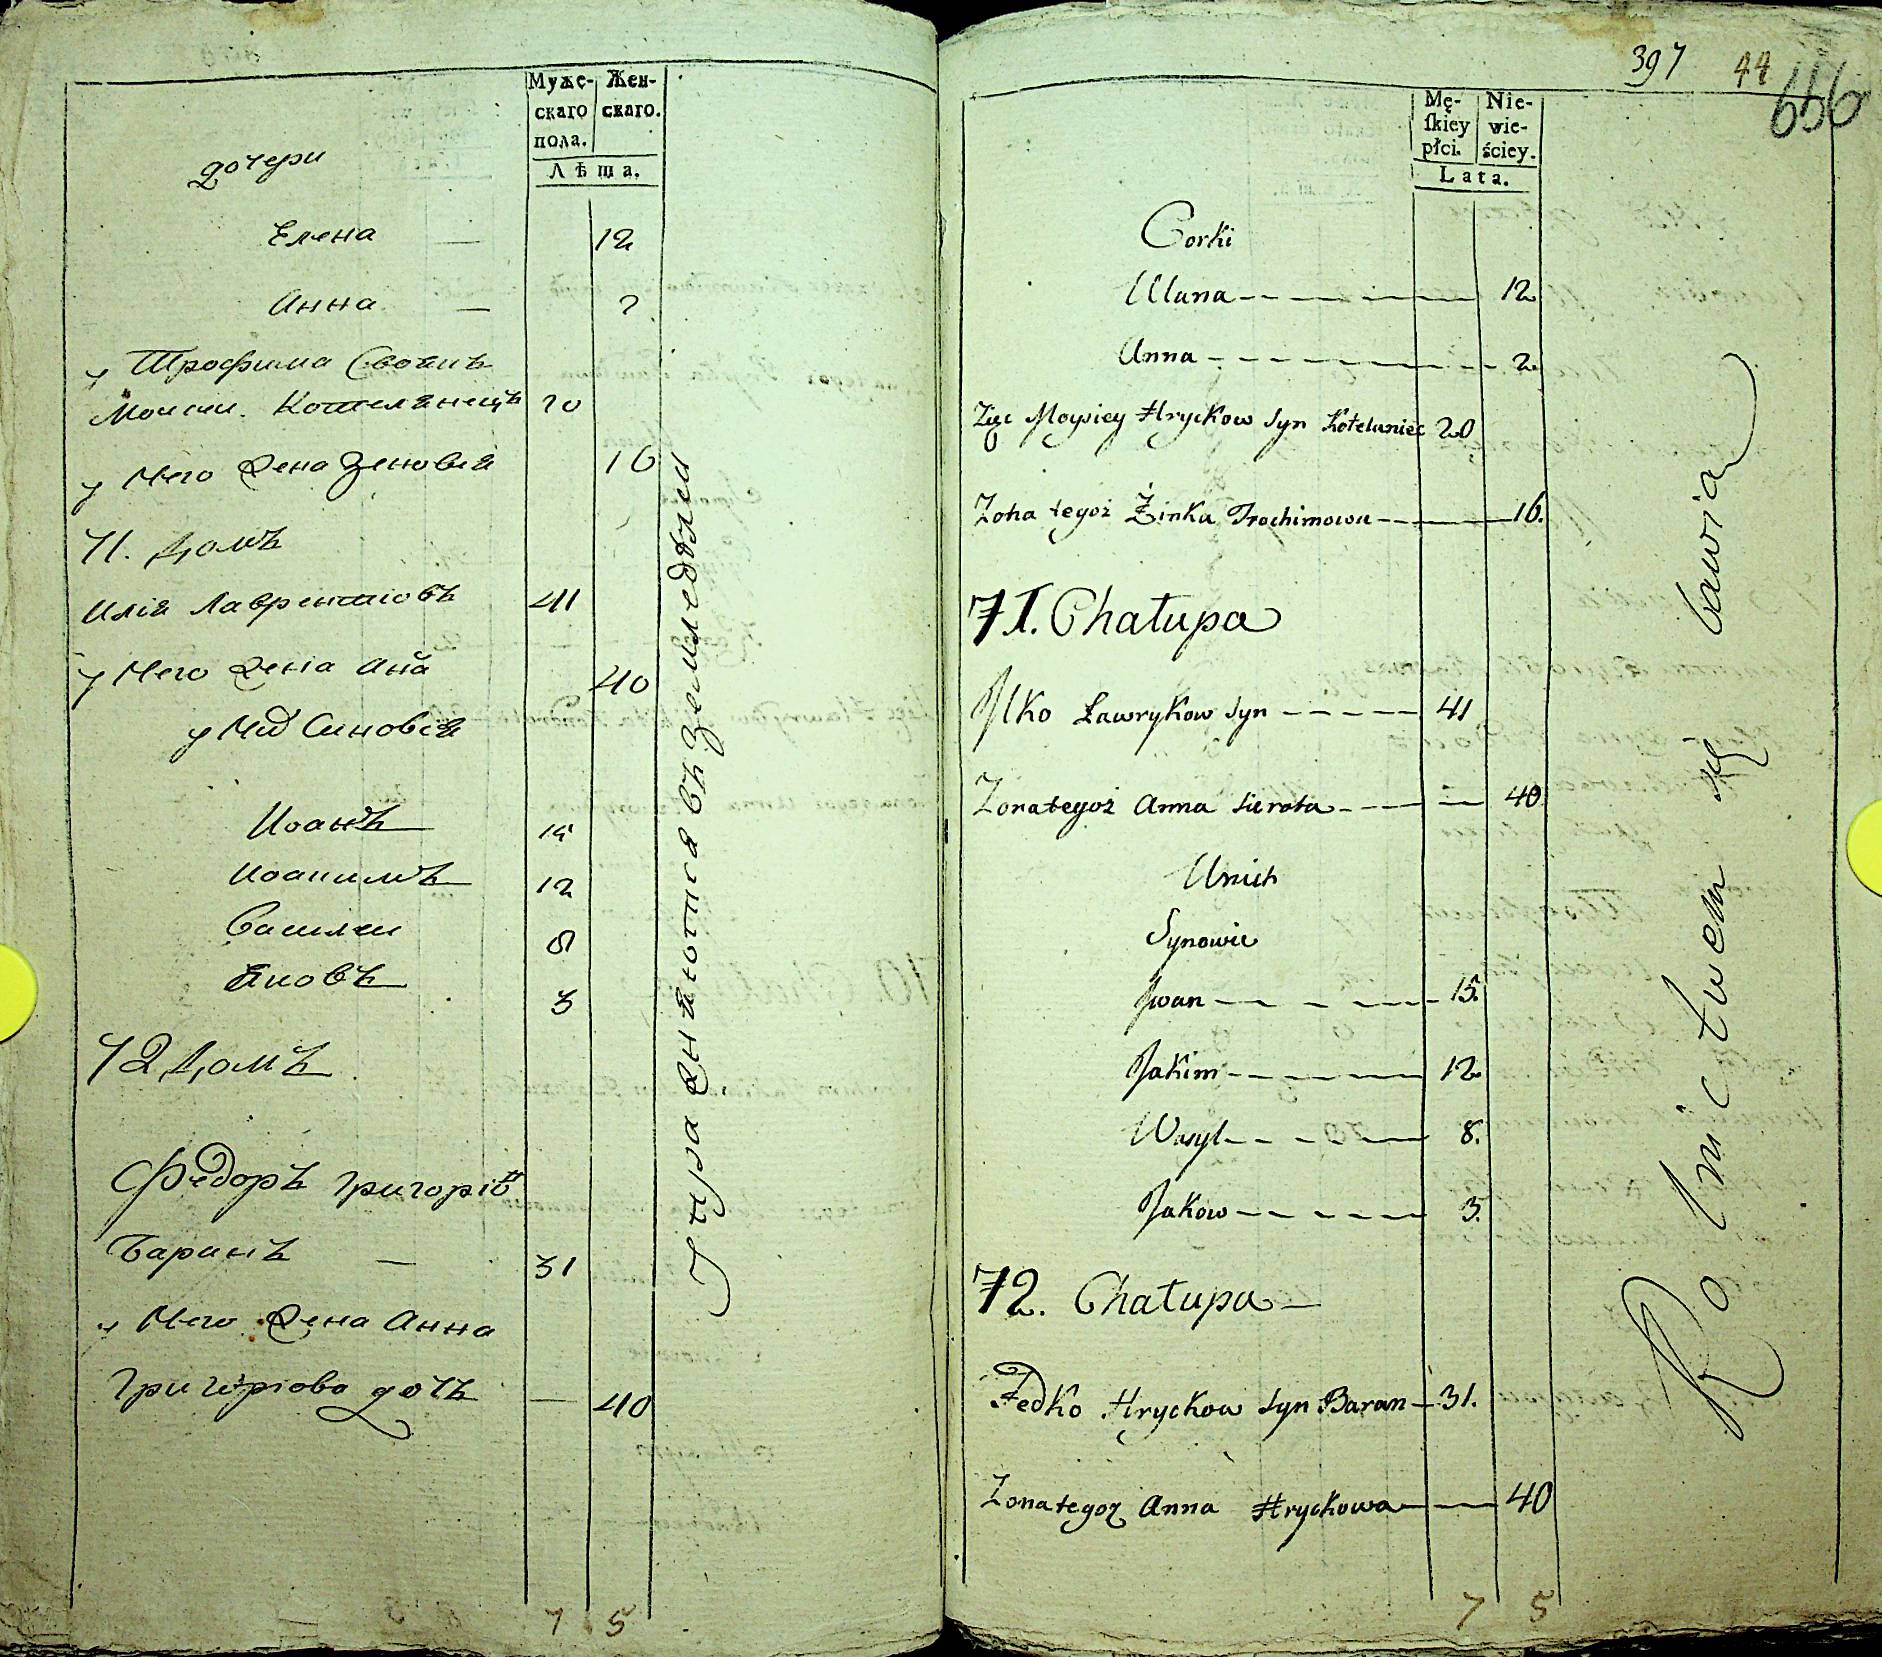 Муже-
скаго
пола.
Жен-
скаго.
Лѣта.
дочери
Елена — 12
Анна — 2
у Трофима Своякъ
Моисей Котелянецъ 20
у Него Жена Зеновия 16
71. Домъ
Илія Лаврентіовъ 41
у Него Жена Анна 40
у Них Синовья
Иоанъ 15
Иоакимъ 12
Василей 8
Яковъ 3
72 Домъ
Федоръ Григоріев
Баранъ — 31
у Него Жена Анна
Григоріова дочь — 40
7 5
упражняются въ Земледѣлии
397 44
656
Mę-
skiey
płci.
Nie-
wie-
ściey.
Lata.
Corki
Ulana 12
Anna 2
Zięc Moysiey Hryckow syn Kotelaniec 20
Zona tegoż Żinka Trochimowa 16.
71. Chałupa
Ilko Ławrykow syn 41
Zona tegoż Anna sierota 40
U nich
Synowie
Jwan 15.
Jakim 12
Wasyl 8.
Jakow 3.
72. Chałupa
Fedko Hryckow syn Baran 31.
Zona tegoz Anna Hryckowa 40
7 5
Rolnictwem się bawią